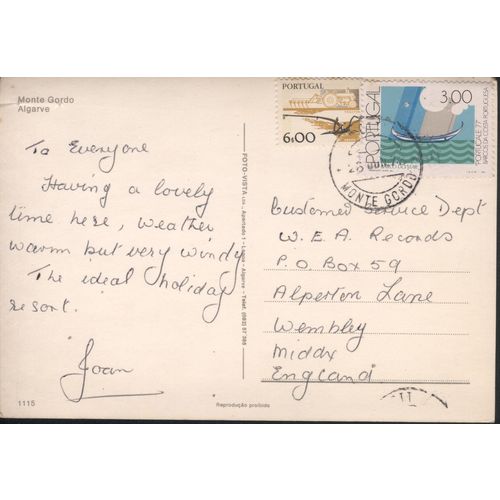 Monte Gordo
Algarve
To Everyone
Having a lovely
time here, weather
warm but very windy
The ideal holiday
resort.
Joan
1115
FOTO-VISTA LDA., Apartado 1 - Lagos - Algarve - Telef. (082) 57 265
Reprodução proibida
PORTUGAL
6$00
PORTUGAL
3,00
PORTUCALE 77
BARCOS DA COSTA PORTUGUESA
MONTE GORDO
Customer Service Dept
W.E.A. Records
P.O. Box 59
Alperton Lane
Wembley
Middx
England